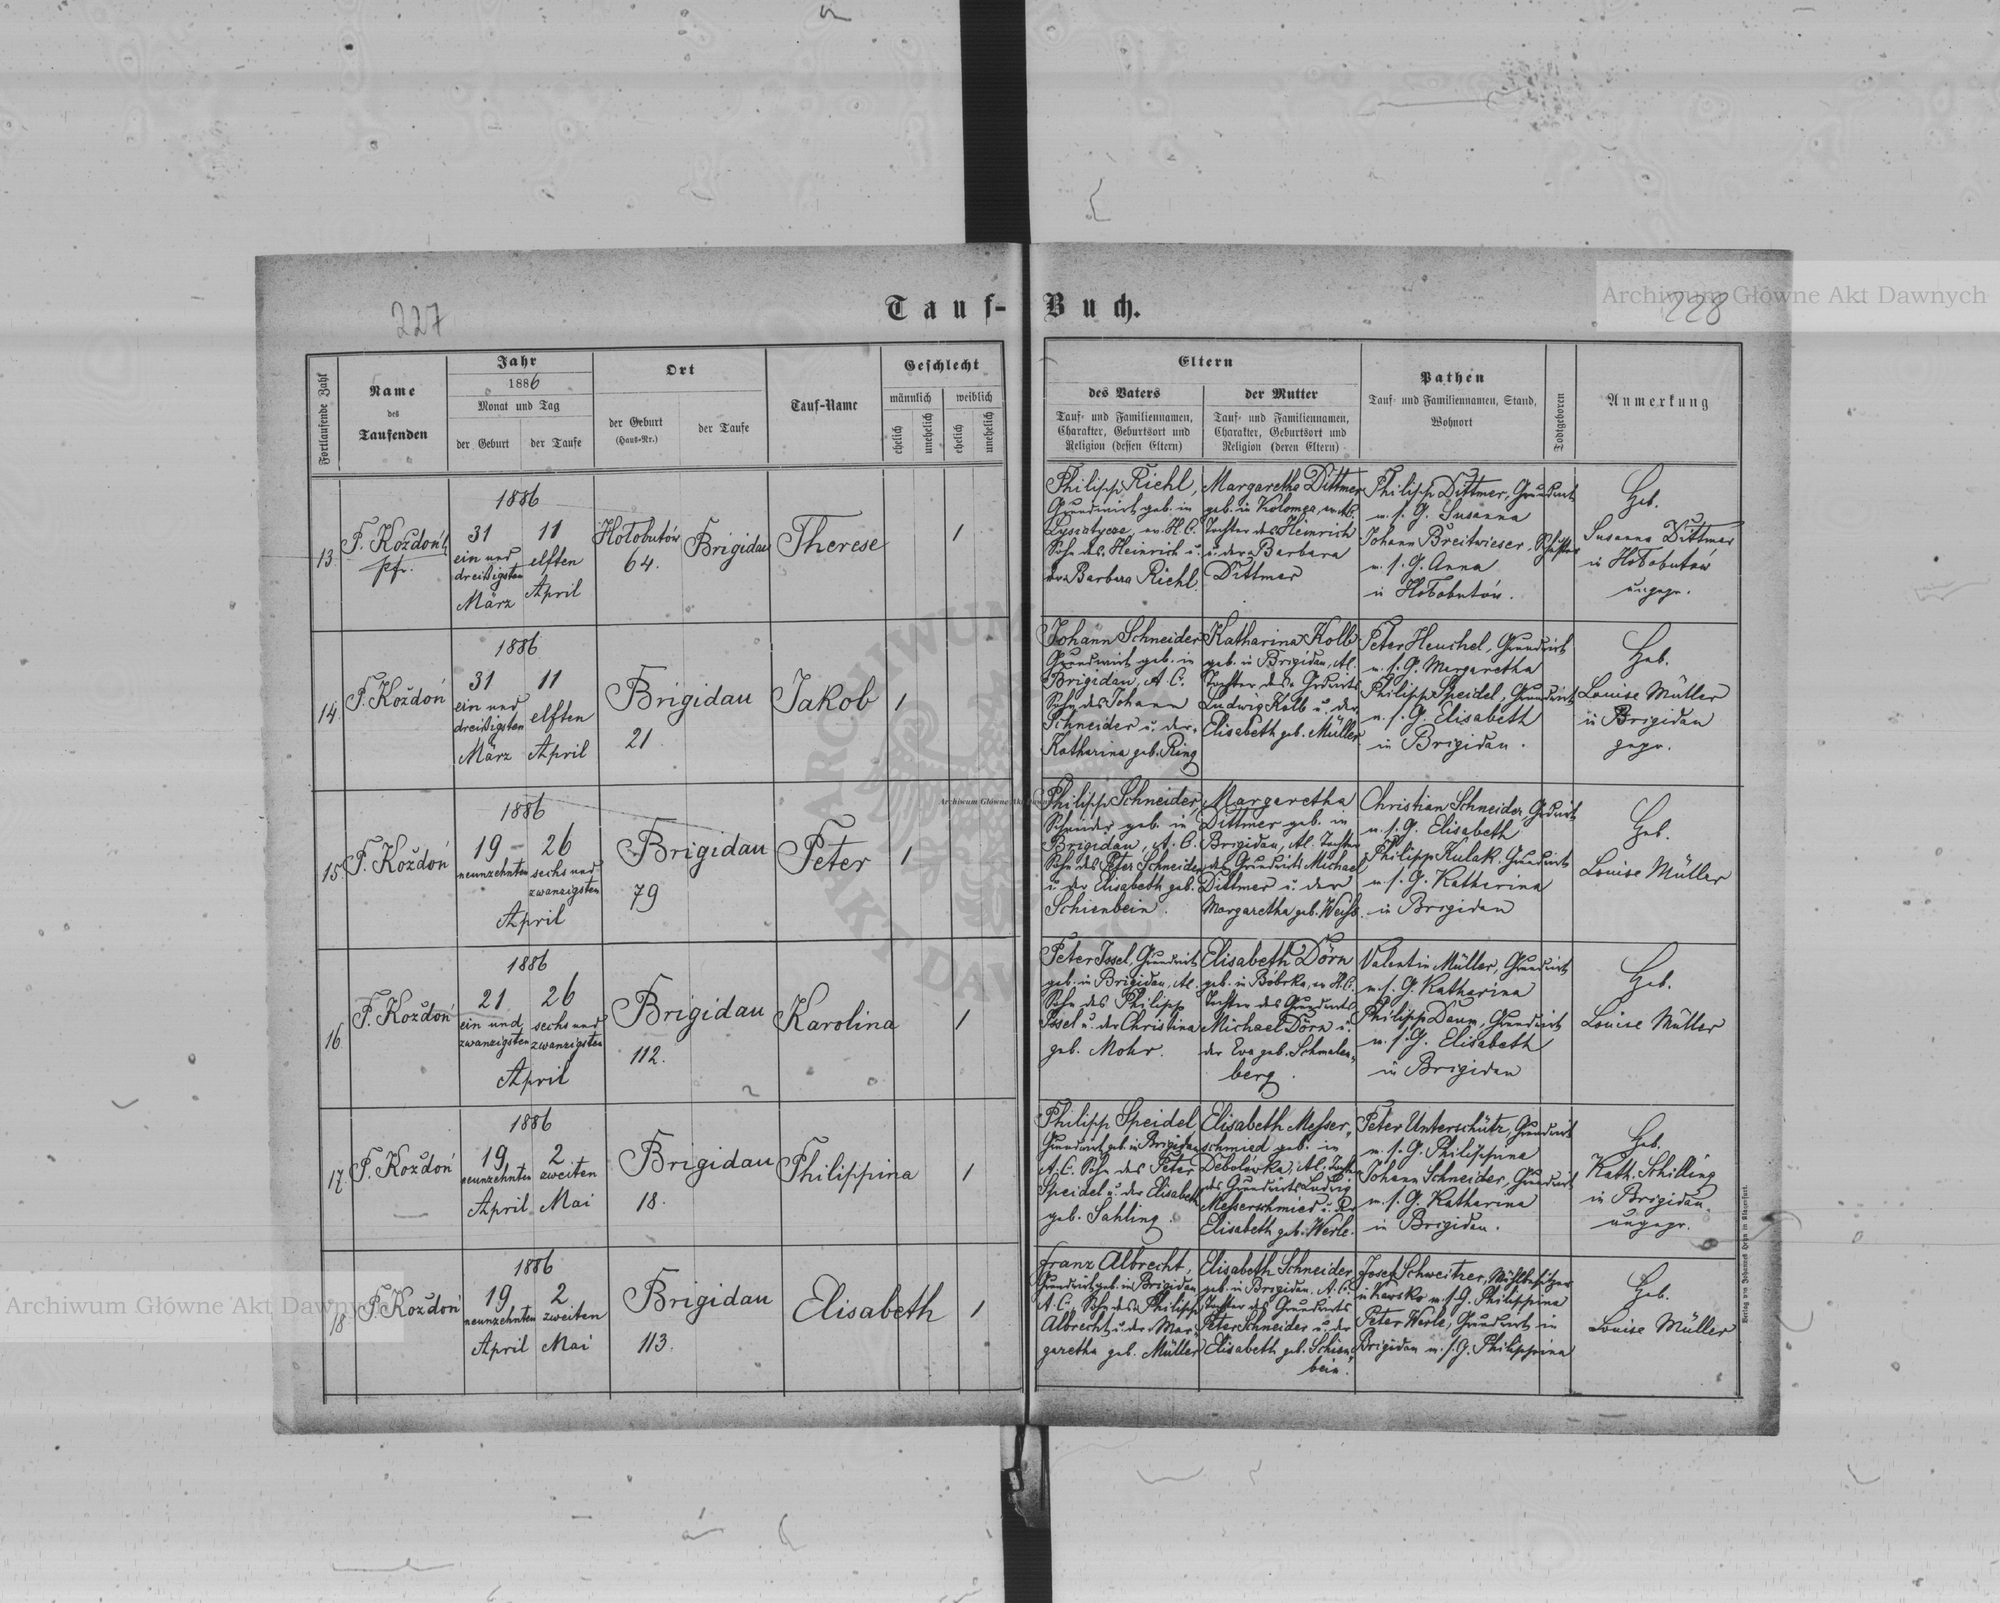 Archiwum Główne Akt Dawnych
227
228
Tauf-Buch.
Fortlaufende Zahl
Name
des
Taufenden
Jahr
1886
Monat und Tag
der Geburt
der Taufe
Ort
der Geburt
(Haus-Nr.)
der Taufe
Tauf-Name
Geschlecht
männlich
weiblich
ehelich
unehelich
ehelich
unehelich
Eltern
des Vaters
Tauf- und Familiennamen,
Charakter, Geburtsort und
Religion (dessen Eltern)
der Mutter
Tauf- und Familiennamen,
Charakter, Geburtsort und
Religion (deren Eltern)
Pathen
Tauf- und Familiennamen, Stand,
Wohnort
Todtgeboren
Anmerkung
13.
F. Koždoń
pfr.
1886
31
ein und
dreißigsten
März
11
elften
April
Hołobutów
64.
Brigidau
Therese
1
Philipp Riehl,
Grundwirt geb. in
Lysiatycze, ev. H.C.
Sohn des Heinrich u.
der Barbara Riehl.
Margaretha Dittmer
geb. in Kolomea, ev. A.C.
Tochter des Heinrich
u. der Barbara
Dittmer
Philipp Dittmer, Grundwirt
u. s. G. Susanna
Johann Breitwieser,
u. s. G. Anna
in Hołobutów.
Heb.
Susanna Dittmer
in Hołobutów
ungepr.
14.
F. Koždoń
1886
31
ein und
dreißigsten
März
11
elften
April
Brigidau
21.
Jakob
1
Johann Schneider
Grundwirt geb. in
Brigidau, A. C.
Sohn des Johann
Schneider u. der
Katharina geb. Ring
Katharina Kolb
geb. in Brigidau, A.C.
Tochter des Grdwirts
Ludwig Kolb u. der
Elisabeth geb. Müller
Peter Heuchel, Grundwirt
u. s. G. Margaretha
Philipp Speidel, Grundwirt
u. s. G. Elisabeth
in Brigidau.
Heb.
Louise Müller
in Brigidau
gepr.
15.
F. Koždoń
1886
19
neunzehnten
26
sechs und
zwanzigsten
April
Brigidau
79
Peter
1
Philipp Schneider,
Schneider geb. in
Brigidau, A. C.
Sohn des Peter Schneider
u. der Elisabeth geb.
Schienbein.
Margaretha
Dittmer geb. in
Brigidau, A.C. Tochter
des Grundwirts Michael
Dittmer u. der
Margaretha geb. Weiß.
Christian Schneider, Grdwirt
u. s. G. Elisabeth
Philipp Kulak, Grundwirt
u. s. G. Katharina
in Brigidau
Heb.
Louise Müller
16.
F. Koždoń
1886
21
ein und
zwanzigsten
26
sechs und
zwanzigsten
April
Brigidau
112.
Karolina
1
Peter Issel, Grundwirt
geb. in Brigidau, A.C.
Sohn des Philipp
Issel u. der Christina
geb. Mohr.
Elisabeth Dörn
geb. in Bóbrka, ev. A.C.
Tochter des Grundwirts
Michael Dörn u.
der Eva geb. Schmalen-
berg.
Valentin Müller, Grundwirt
u. s. G. Katharina
Philipp Daum, Grundwirt
u. s. G. Elisabeth
in Brigidau
Heb.
Louise Müller
17.
F. Koždoń
1886
19
neunzehnten
April
2
zweiten
Mai
Brigidau
18.
Philippina
1
Philipp Speidel
Grundwirt geb. in Brigidau
A. C. Sohn des Peter
Speidel u. der Elisabeth
geb. Sahling.
Elisabeth Messer-
schmied geb. in
Debolówka, A.C. Tochter
des Grundwirts Ludwig
Messerschmied u. der
Elisabeth geb. Werle.
Peter Unterschütz, Grundwirt
u. s. G. Philippina
Johann Schneider, Grundwirt
u. s. G. Katharina
in Brigidau.
Heb.
Kath. Schilling
in Brigidau
ungepr.
18.
F. Koždoń
1886
19
neunzehnten
April
2
zweiten
Mai
Brigidau
113.
Elisabeth
1
Franz Albrecht,
Grundwirt geb. in Brigidau
A. C., Sohn des Philipp
Albrecht u. der Mar-
garetha geb. Müller
Elisabeth Schneider
geb. in Brigidau, A.C.
Tochter des Grundwirts
Peter Schneider u. der
Elisabeth geb. Schien-
bein.
Josef Schweitzer, Mühlbesitzer
in Kawsko u. s. G. Philippina
Peter Werle, Grundwirt in
Brigidau u. s. G. Philippina
Heb.
Louise Müller
Verlag von Johannes Heyn in Klagenfurt.
Archiwum Główne Akt Dawnych
ARCHIWUM
AKT DAWNYCH
Archiwum Główne Akt Dawnych